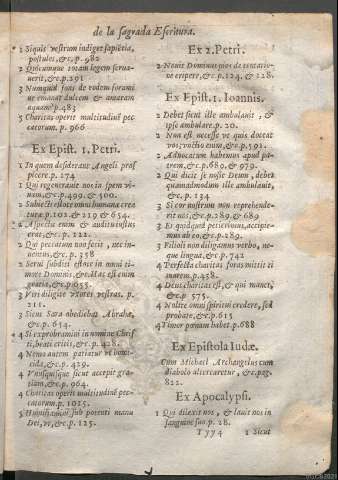 de la sagrada Escritura.
1 Siquis vestrum indiget sapiẽtia,
postulet, &c. p. 982
2 Quicumque totam legem serua-
uerit, &c. p. 291
3 Numquid fons de eodem forami
ne emanat dulcem & amaram
aquam? p. 483
5 Charitas operit multitudinẽ pec
catorum. p. 966
Ex Epist. 1. Petri.
1 In quem desiderant Angeli pros
picere. p. 174
1 Qui regenerauit nos in spem vi-
uam, &c. p. 499. & 500.
2 Subiecti estote omni humanæ crea
turæ. p. 102 & 219 & 654.
2 aspectu enim & auditu iustus
erat, &c. p. 222.
2 Qui peccatum non fecit, nec in-
uentus, &c. p. 358
2 Serui subditi estote in omni ti-
more Dominis, &c. Hæc est enim
gratia, &c. p. 655.
3 Viri diligite vxores vestras. p.
211.
3 Sicut Sara obediebat Abrahæ,
&c. p. 654.
4 Si exprobramini in nomine Chris
ti, beati eritis, &c. p. 428.
4 Nemo autem patiatur vt homi-
cida, &c. p. 429.
4 Vnusquisque sicut accepit gra-
tiam, &c. p. 964.
4 Charitas operit multitudinẽ pec-
catorum. p. 1025.
5 Humiliamini sub potenti manu
Dei, vt, &c. p. 125.
Ex 2. Petri.
2 Nouit Dominus pios de tentatio-
ne eripere, &c. p. 124. & 128.
Ex Epist. 1. Ioannis.
2 Debet sicut ille ambulauit, &
ipse ambulare. p. 20.
2 Non est necesse vt quis doceat
vos, vnctio enim, &c. p. 591.
2 Aduocatum habemus apud pa-
trem, &c. p. 680. & 979.
2 Qui dicit se nosse Deum, debet
quemadmodum ille ambulauit,
&c. p. 134
3 Si cor nostrum non reprehende-
rit nos, &c. p. 289 & 689
3 Et quodquod petierimus, accipie-
mus ab eo, &c. p. 289.
3 Filioli non diligamus verbo, ne-
que lingua, &c. p. 742
4 Perfecta charitas foras mittit ti
morem. p. 458.
4 Deus charitas est, & qui manet,
&c. p. 575.
4 Nolite omni spiritui credere, sed
probate, &c. p. 615
4 Timor pœnam habet. p. 688
Ex Epistola Iudæ.
Cum Michael Archangelus cum
diabolo altercaretur, &c. pag.
822.
Ex Apocalypsi.
1 Qui dilexit nos, & lauit nos in
sanguine suo. p. 28.
Tyy4 1 Sicut